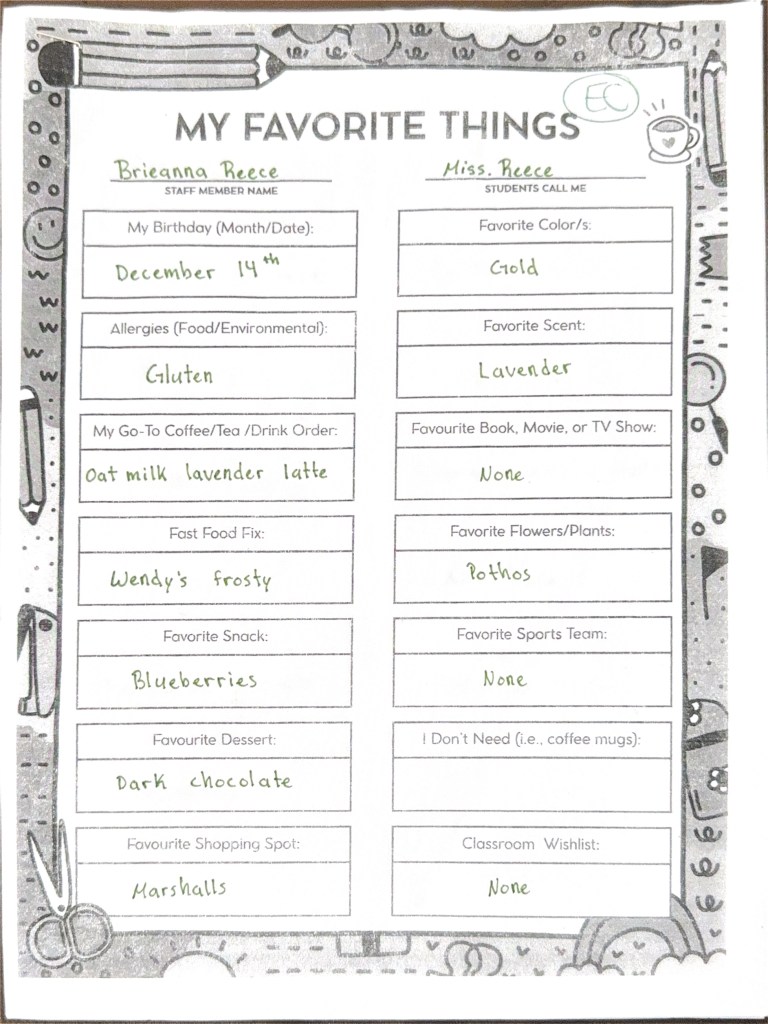 EC
MY FAVORITE THINGS
Brieanna Reece
STAFF MEMBER NAME
Miss. Reece
STUDENTS CALL ME
My Birthday (Month/Date):
December 14th
Allergies (Food/Environmental):
Gluten
My Go-To Coffee/Tea /Drink Order:
Oat milk lavender latte
Fast Food Fix:
Wendy's frosty
Favorite Snack:
Blueberries
Favourite Dessert:
Dark chocolate
Favourite Shopping Spot:
Marshalls
Favorite Color/s:
Gold
Favorite Scent:
Lavender
Favourite Book, Movie, or TV Show:
None
Favorite Flowers/Plants:
Pothos
Favorite Sports Team:
None
I Don't Need (i.e., coffee mugs):
Classroom Wishlist:
None